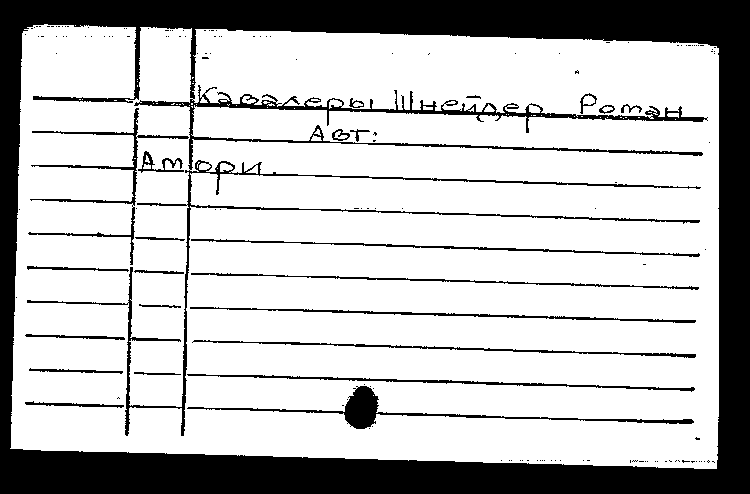 Кавалеры Шнейдер Роман
Авт:
Амори.